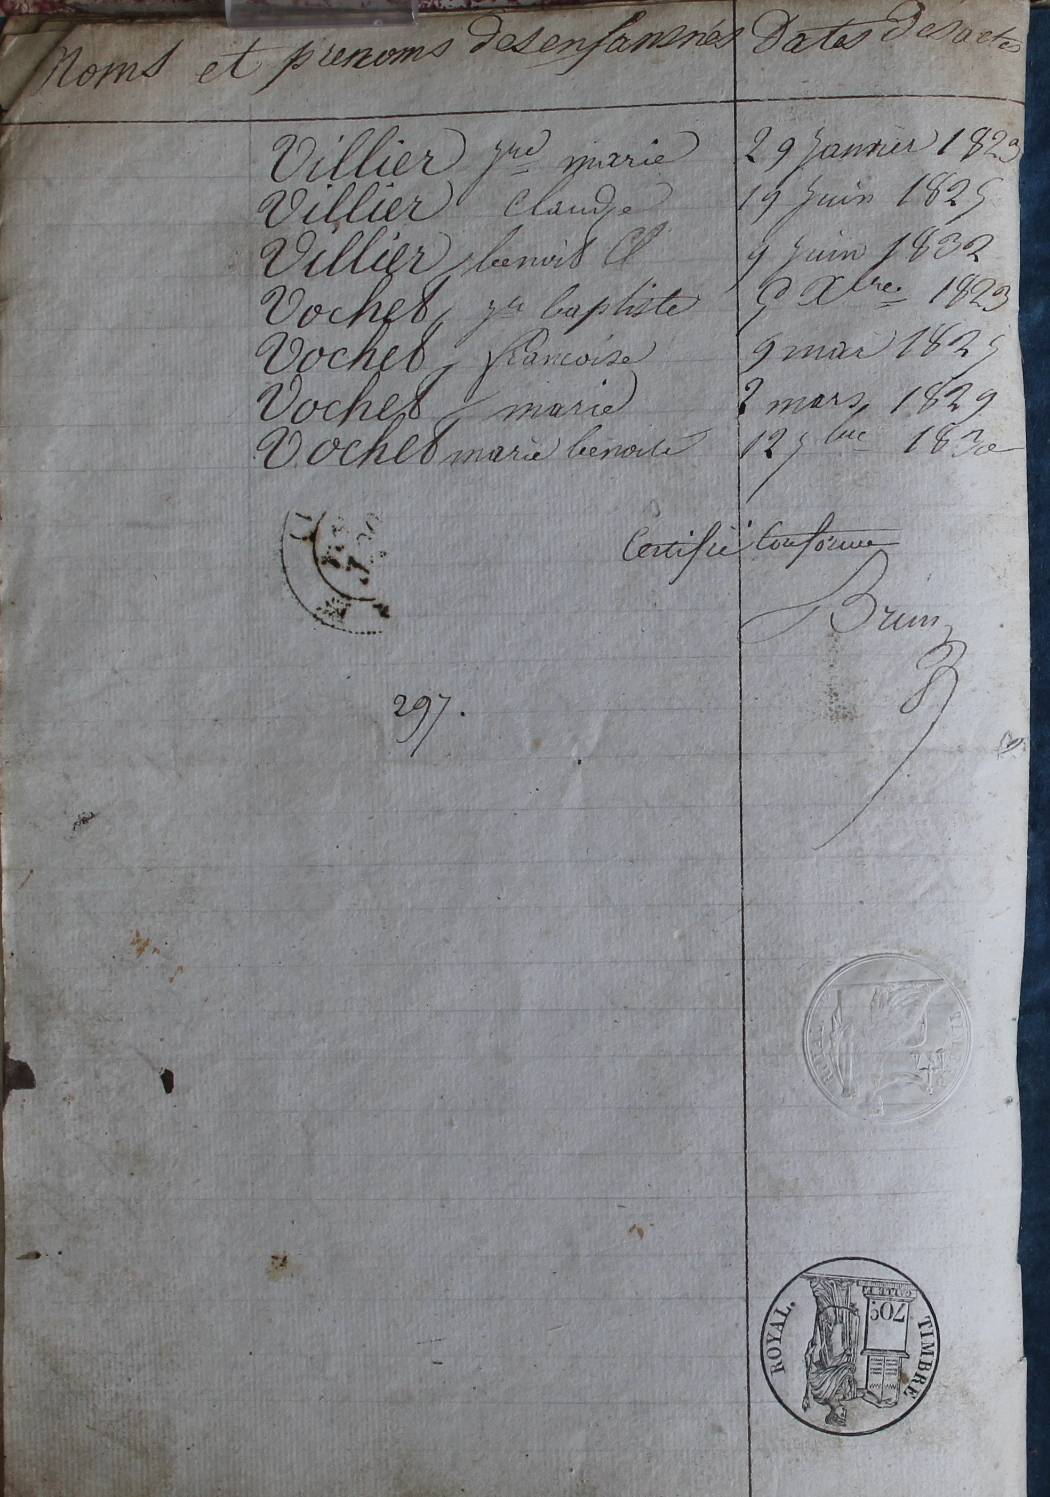 Noms et prenoms des enfans nés Dates des actes
Villier jne marie 29 janvier 1823
Villier Claude 19 juin 1825
Villier benoit Cl 9 juin 1832
Vochet jn baptiste Xbre 1823
Vochet francoise 9 mai 1825
Vochet marie 2 mars 1829
Vochet marie benoite 12 1830
Certifié Conforme
Brun
297.
ROYAL. TIMBRE
70c